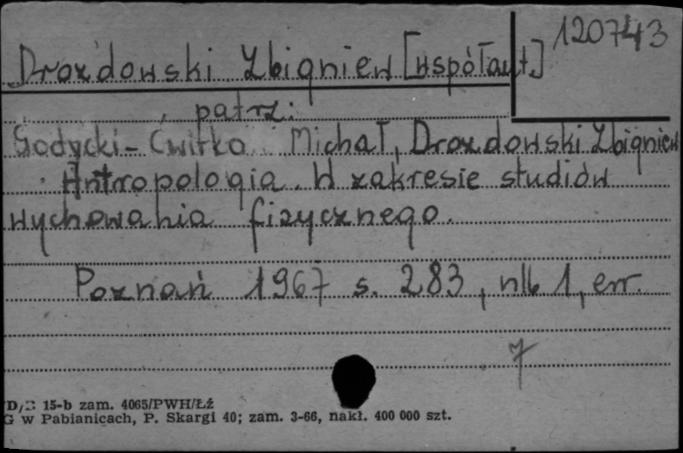 120743
Drozdowski Zbigniew [współaut.]
patrz:
Godycki-Ćwirko Michał, Drozdowski Zbigniew
Antropologia. W zakresie studiów
wychowania fizycznego.
Poznań 1967 s. 283, nlb 1, err.
7
D/B 15-b zam. 4065/PWH/Łź
G w Pabianicach, P. Skargi 40; zam. 3-66, nakł. 400 000 szt.